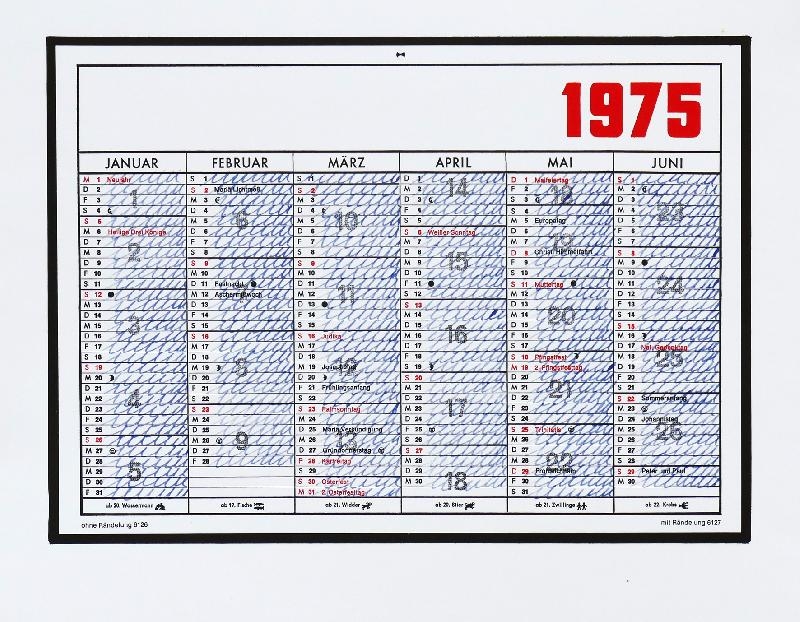 1975
JANUAR
M 1 Neujahr
D 2
F 3
S 4
S 5
M 6 Heilige Drei Könige
D 7
M 8
D 9
F 10
S 11
S 12
M 13
D 14
M 15
D 16
F 17
S 18
S 19
M 20
D 21
M 22
D 23
F 24
S 25
S 26
M 27
D 28
M 29
D 30
F 31
1
2
3
4
5
ab 20. Wassermann
FEBRUAR
S 1
S 2 Mariä Lichtmeß
M 3
D 4
M 5
D 6
F 7
S 8
S 9
M 10
D 11 Fastnacht
M 12 Aschermittwoch
D 13
F 14
S 15
S 16
M 17
D 18
M 19
D 20
F 21
S 22
S 23
M 24
D 25
M 26
D 27
F 28
6
8
9
MÄRZ
S 1
S 2
M 3
D 4
M 5
D 6
F 7
S 8
S 9
M 10
D 11
M 12
D 13
F 14
S 15
S 16 Judika
M 17
D 18
M 19
D 20
F 21 Frühlingsanfang
S 22
S 23 Palmsonntag
M 24
D 25 Mariä Verkündigung
M 26
D 27 Gründonnerstag
F 28 Karfreitag
S 29
S 30 Osterfest
M 31 2. Osterfeiertag
10
11
12
13
ab 21. Widder
APRIL
D 1
M 2
D 3
F 4
S 5
S 6 Weißer Sonntag
M 7
D 8
M 9
D 10
F 11
S 12
S 13
M 14
D 15
M 16
D 17
F 18
S 19
S 20
M 21
D 22
M 23
D 24
F 25
S 26
S 27
M 28
D 29
M 30
14
15
16
17
18
ab 20. Stier
MAI
D 1 Maifeiertag
F 2
S 3
S 4
M 5 Europatag
D 6
M 7
D 8 Christi Himmelfahrt
F 9
S 10
S 11 Muttertag
M 12
D 13
M 14
D 15
F 16
S 17
S 18 Pfingstfest
M 19 2. Pfingstfeiertag
D 20
M 21
D 22
F 23
S 24
S 25 Trinitatis
M 26
D 27
M 28
D 29 Fronleichnam
F 30
S 31
20
21
22
ab 21. Zwillinge
JUNI
S 1
M 2
D 3
M 4
D 5
F 6
S 7
S 8
M 9
D 10
M 11
D 12
F 13
S 14
S 15
M 16
D 17
M 18
D 19
F 20
S 21
S 22 Sommeranfang
M 23
D 24 Johannistag
M 25
D 26
F 27
S 28
S 29 Peter und Paul
M 30
23
24
25
26
ab 22. Krebs
ohne Rändelung 6126
mit Rändelung 6127